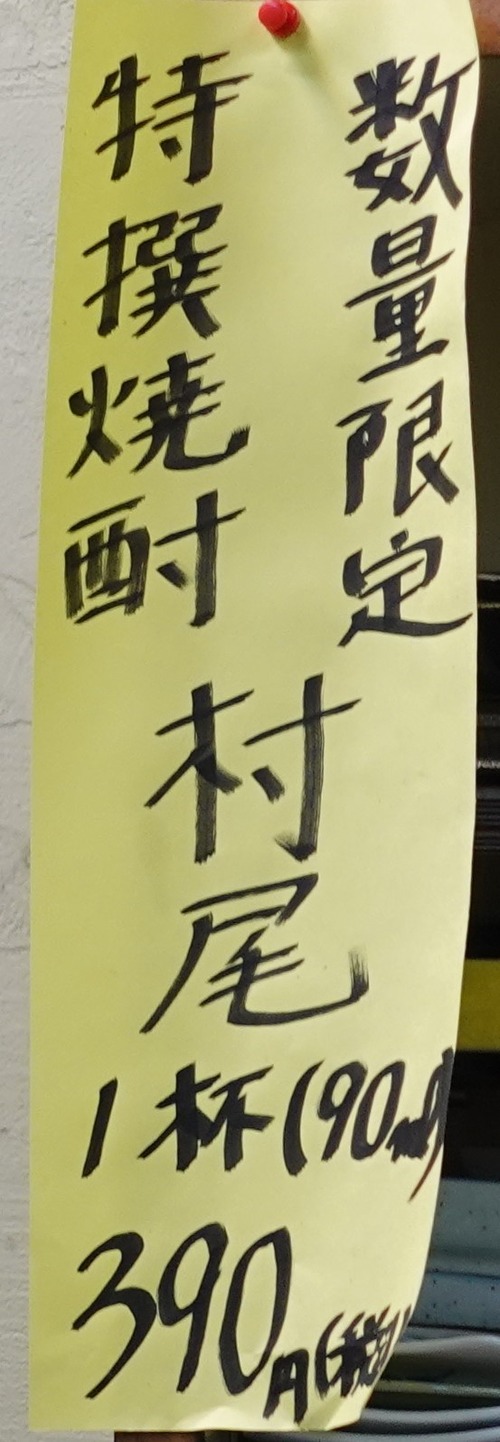 数量限定
特撰焼酎
村尾
1杯(90ml)
390円(税